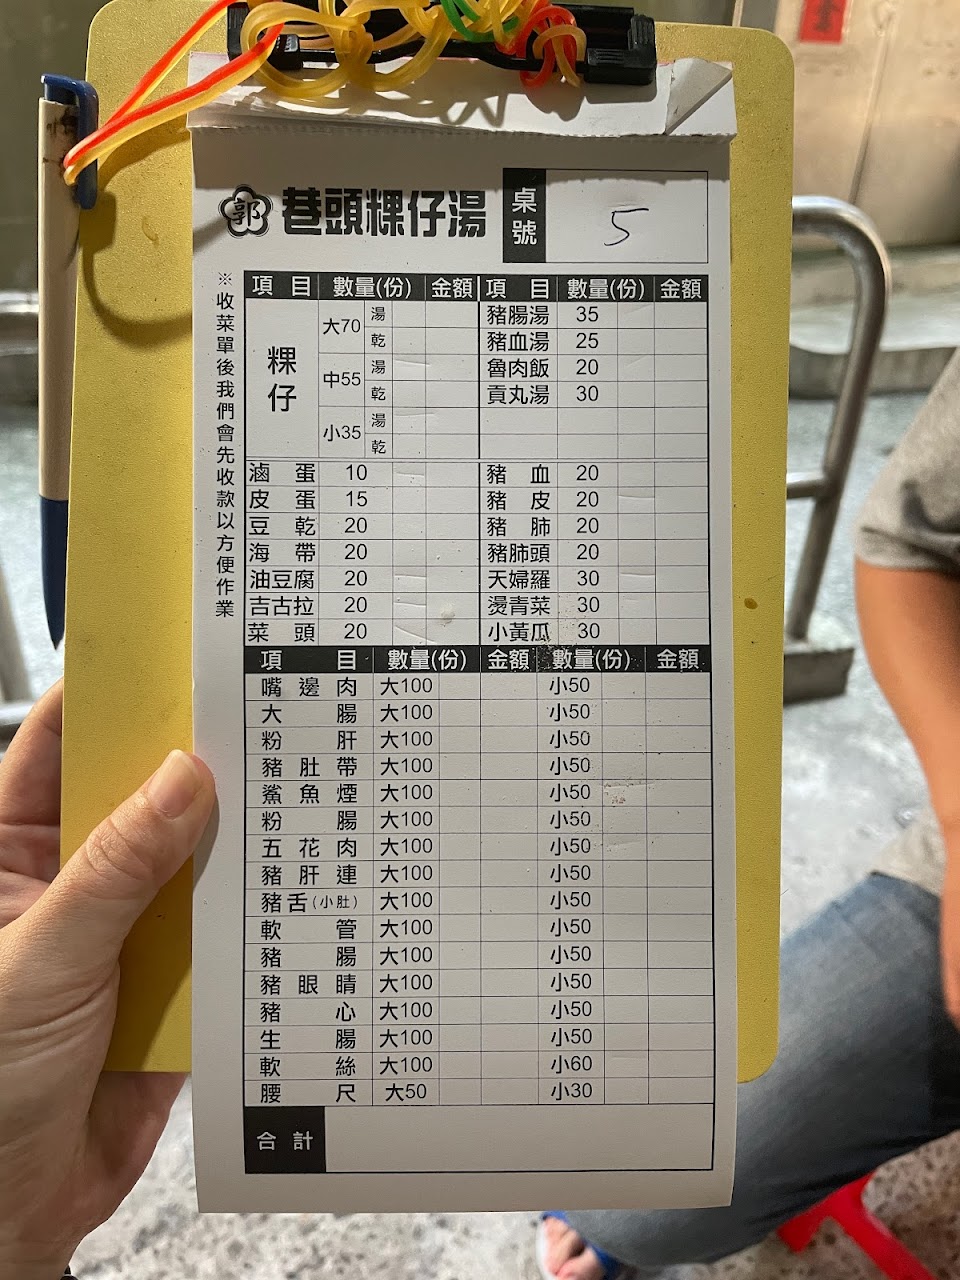 郭 巷頭粿仔湯 桌號 5
※收菜單後我們會先收款以方便作業
項目 數量(份) 金額 項目 數量(份) 金額
粿仔 大70 湯 豬腸湯 35
乾 豬血湯 25
中55 湯 魯肉飯 20
乾 貢丸湯 30
小35 湯
乾
滷蛋 10 豬血 20
皮蛋 15 豬皮 20
豆乾 20 豬肺 20
海帶 20 豬肺頭 20
油豆腐 20 天婦羅 30
吉古拉 20 燙青菜 30
菜頭 20 小黃瓜 30
項目 數量(份) 金額 數量(份) 金額
嘴邊肉 大100 小50
大腸 大100 小50
粉肝 大100 小50
豬肚帶 大100 小50
鯊魚煙 大100 小50
粉腸 大100 小50
五花肉 大100 小50
豬肝連 大100 小50
豬舌(小肚) 大100 小50
軟管 大100 小50
豬腸 大100 小50
豬眼睛 大100 小50
豬心 大100 小50
生腸 大100 小50
軟絲 大100 小60
腰尺 大50 小30
合計